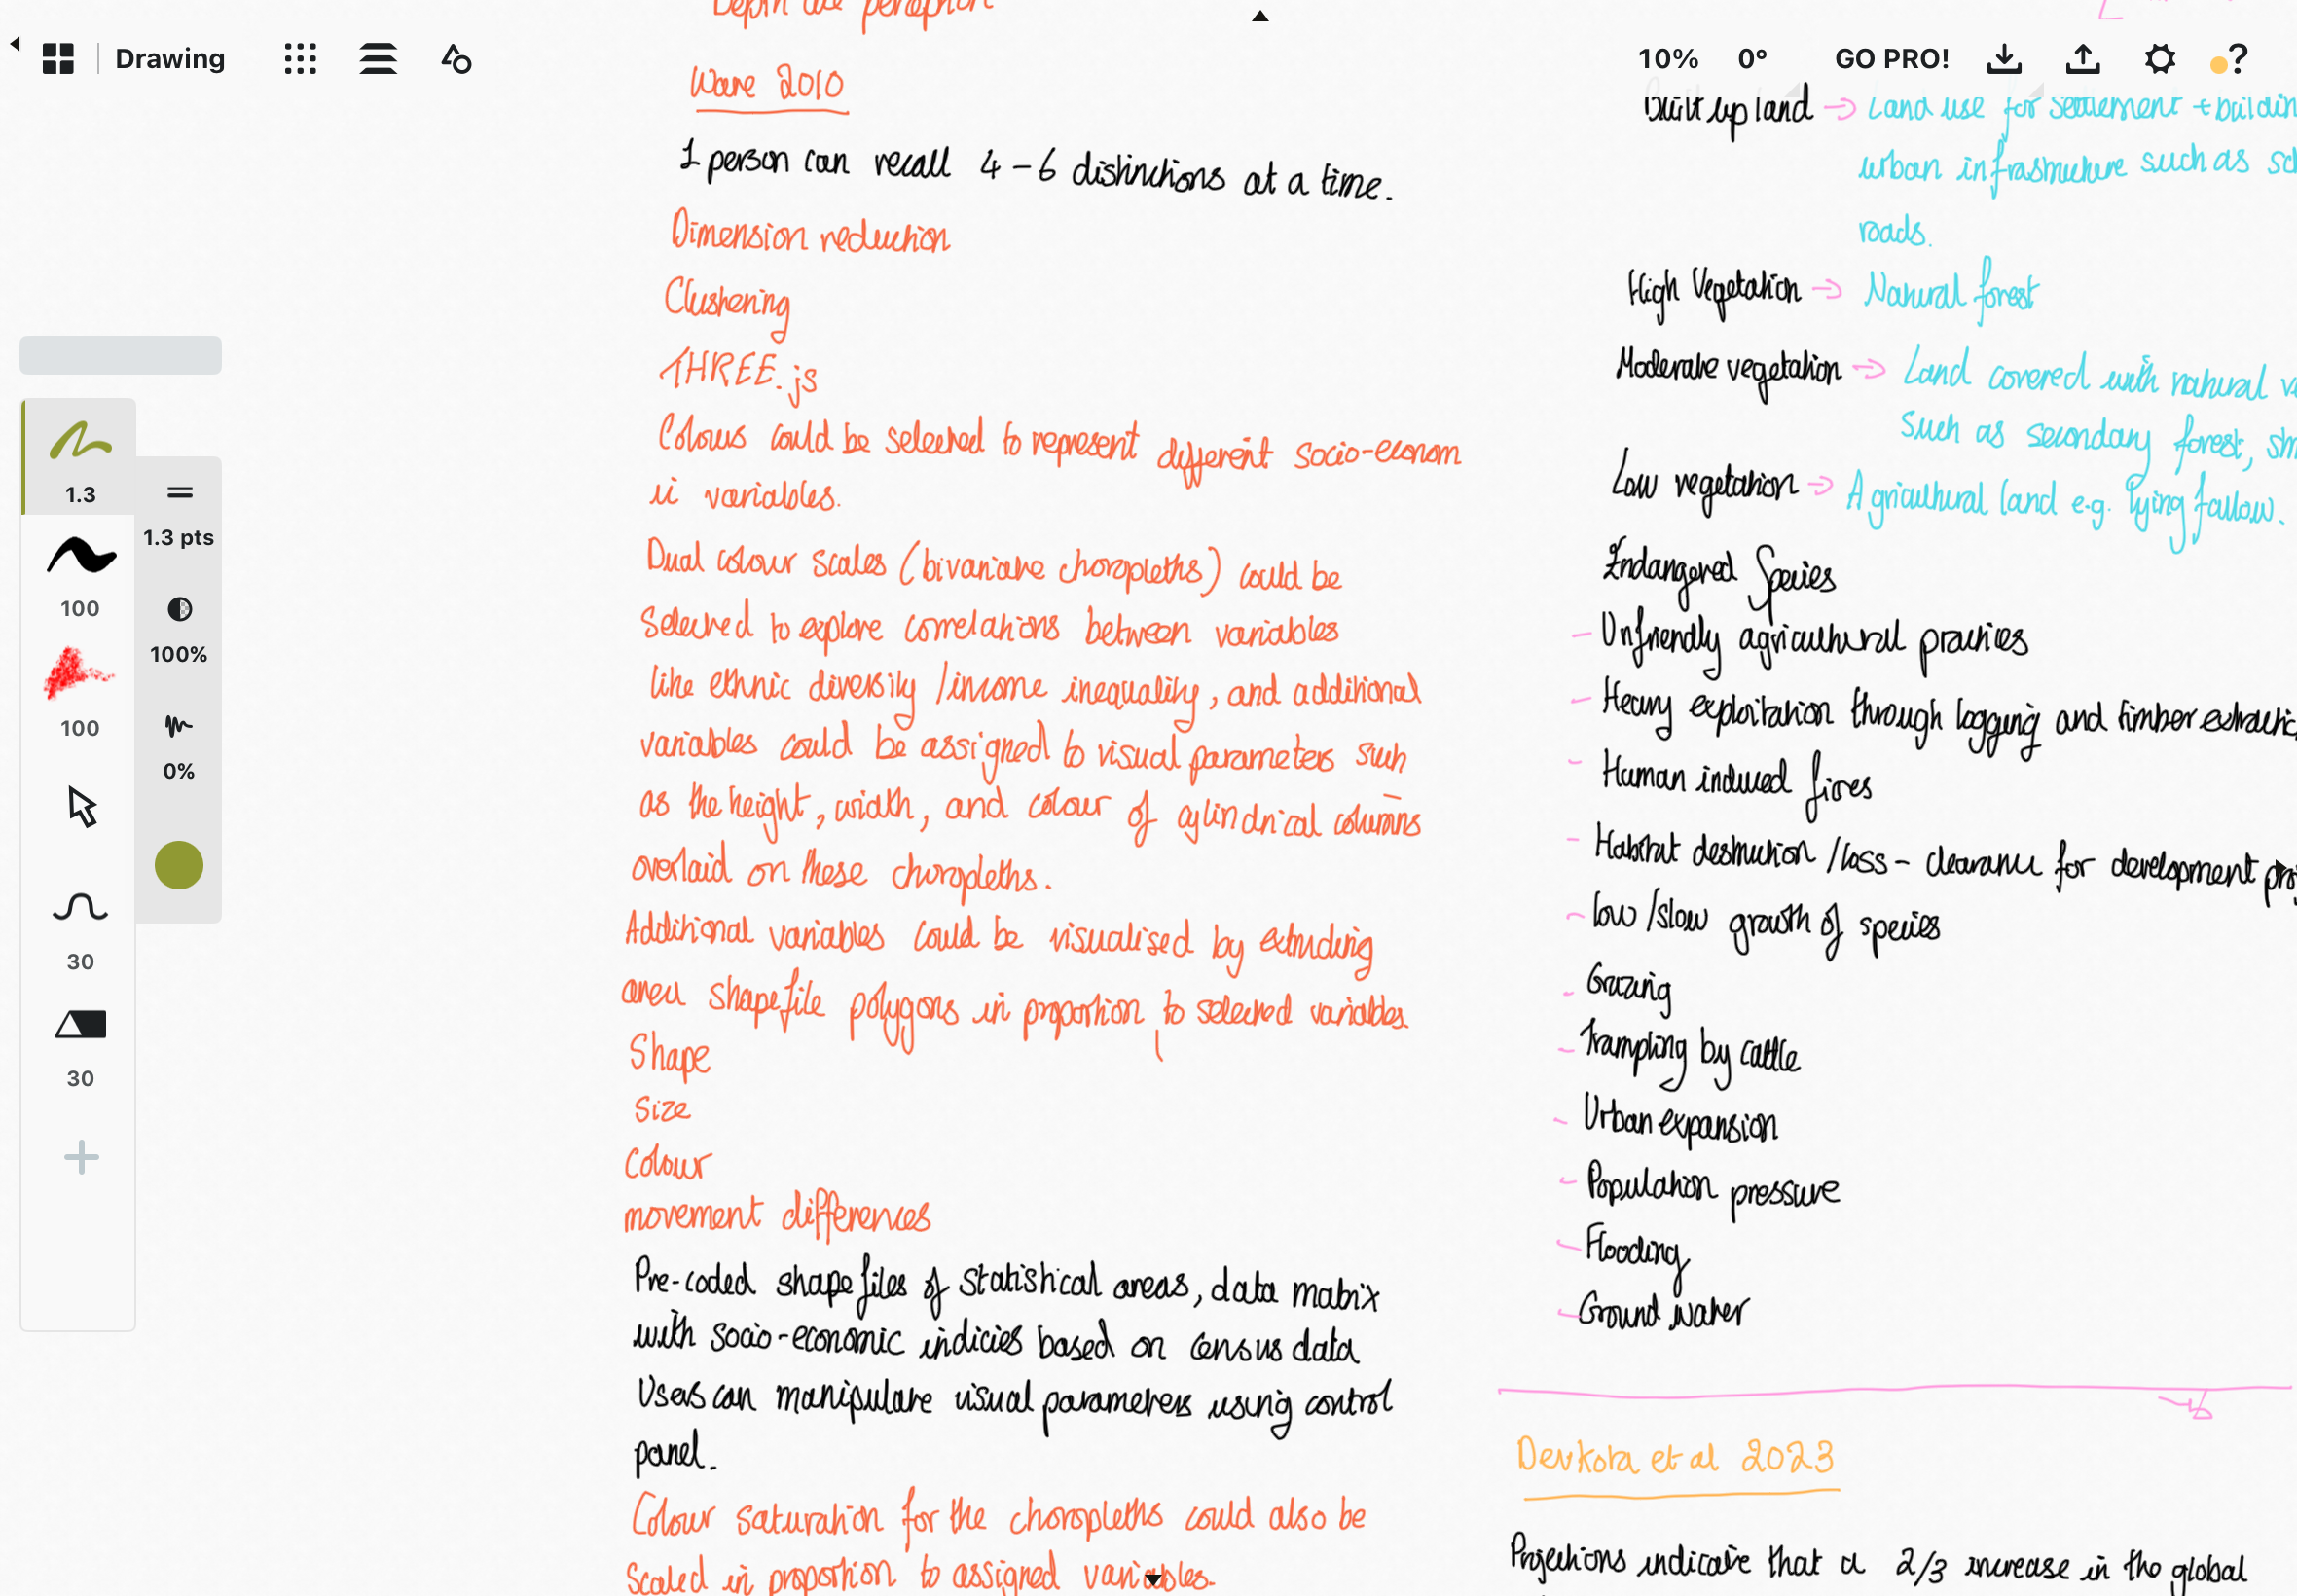 Depth cue perception
Drawing
10% 0° GO PRO! ?
Ware 2010
1 person can recall 4-6 distinctions at a time.
Dimension reduction
Clustering
THREE.js
Colours could be selected to represent different socio-econom
ic variables.
Dual colour scales (bivariate choropleths) could be
selected to explore correlations between variables
like ethnic diversity / income inequality, and additional
variables could be assigned to visual parameters such
as the height, width, and colour of cylindrical columns
overlaid on these choropleths.
Additional variables could be visualised by extruding
area shapefile polygons in proportion to selected variables.
Shape
Size
Colour
movement differences
Pre-coded shapefiles of statistical areas, data matrix
with socio-economic indicies based on census data
Users can manipulate visual parameters using control
panel.
Colour saturation for the choropleths could also be
scaled in proportion to assigned variables.
1.3
100
100
30
30
1.3 pts
100%
0%
Built up land → Land use for settlement + buildin
urban infrastructure such as sc
roads.
High Vegetation → Natural forest
Moderate vegetation → Land covered with natural v
such as secondary forest, sh
Low vegetation → Agricultural land e.g. lying fallow.
Endangered Species
- Unfriendly agricultural practices
- Heavy exploitation through logging and timber extractio
- Human induced fires
- Habitat destruction / loss - clearance for development pro
- Low / slow growth of species
- Grazing
- Trampling by cattle
- Urban expansion
- Population pressure
- Flooding
- Ground water
Devkota et al 2023
Projections indicate that a 2/3 increase in the global